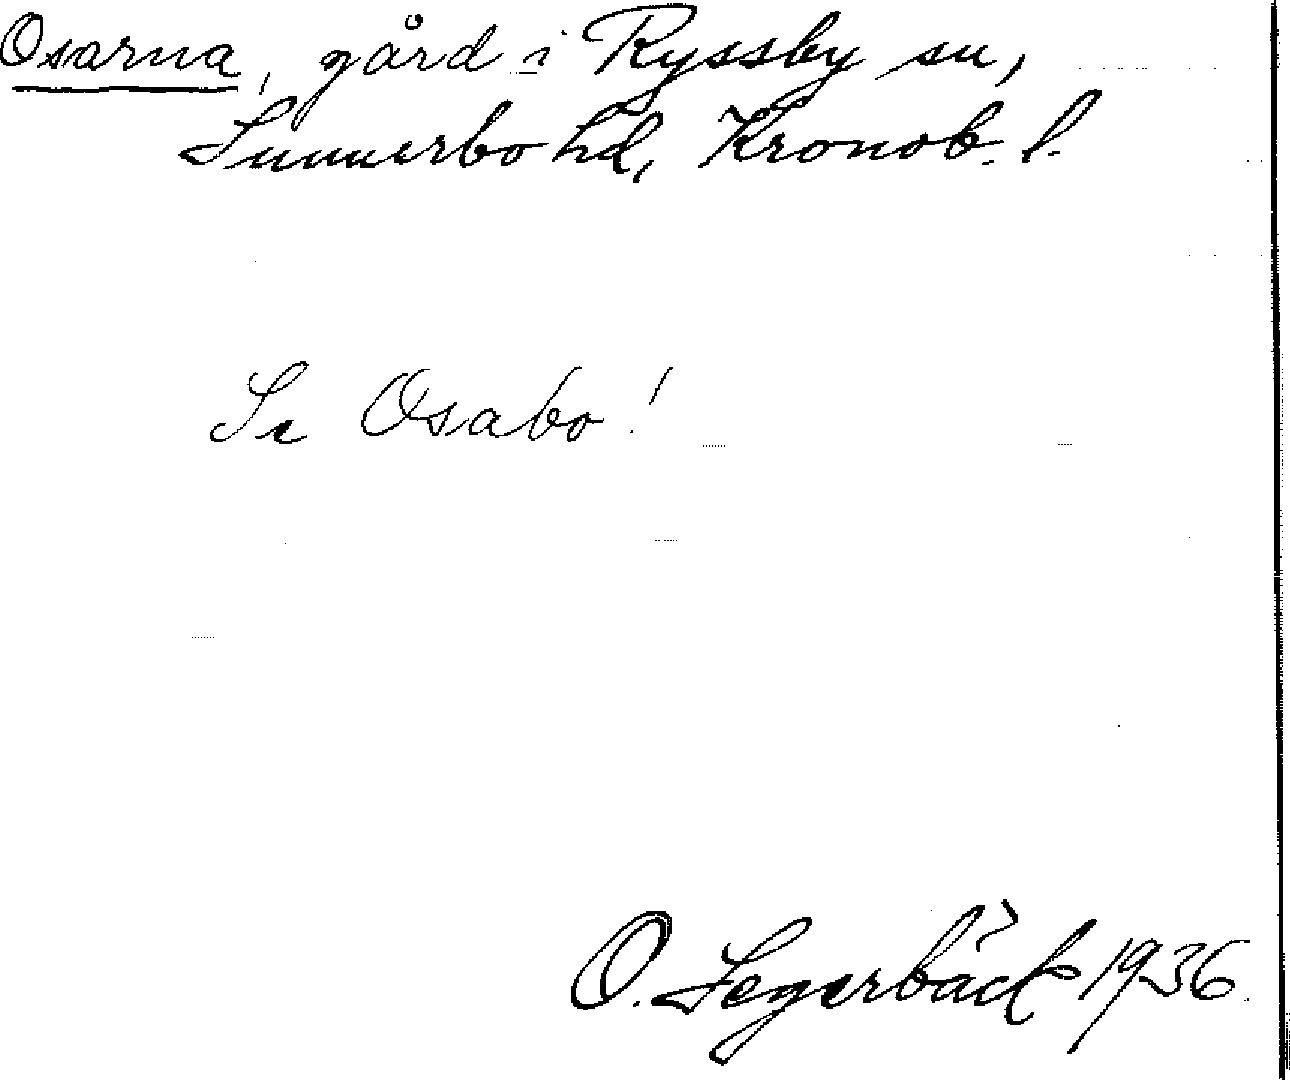 Osarna, gård i Ryssby sn,
Sunnerbo hd, Kronob. l.
Se Osabo!
O. Segerbäck 1936